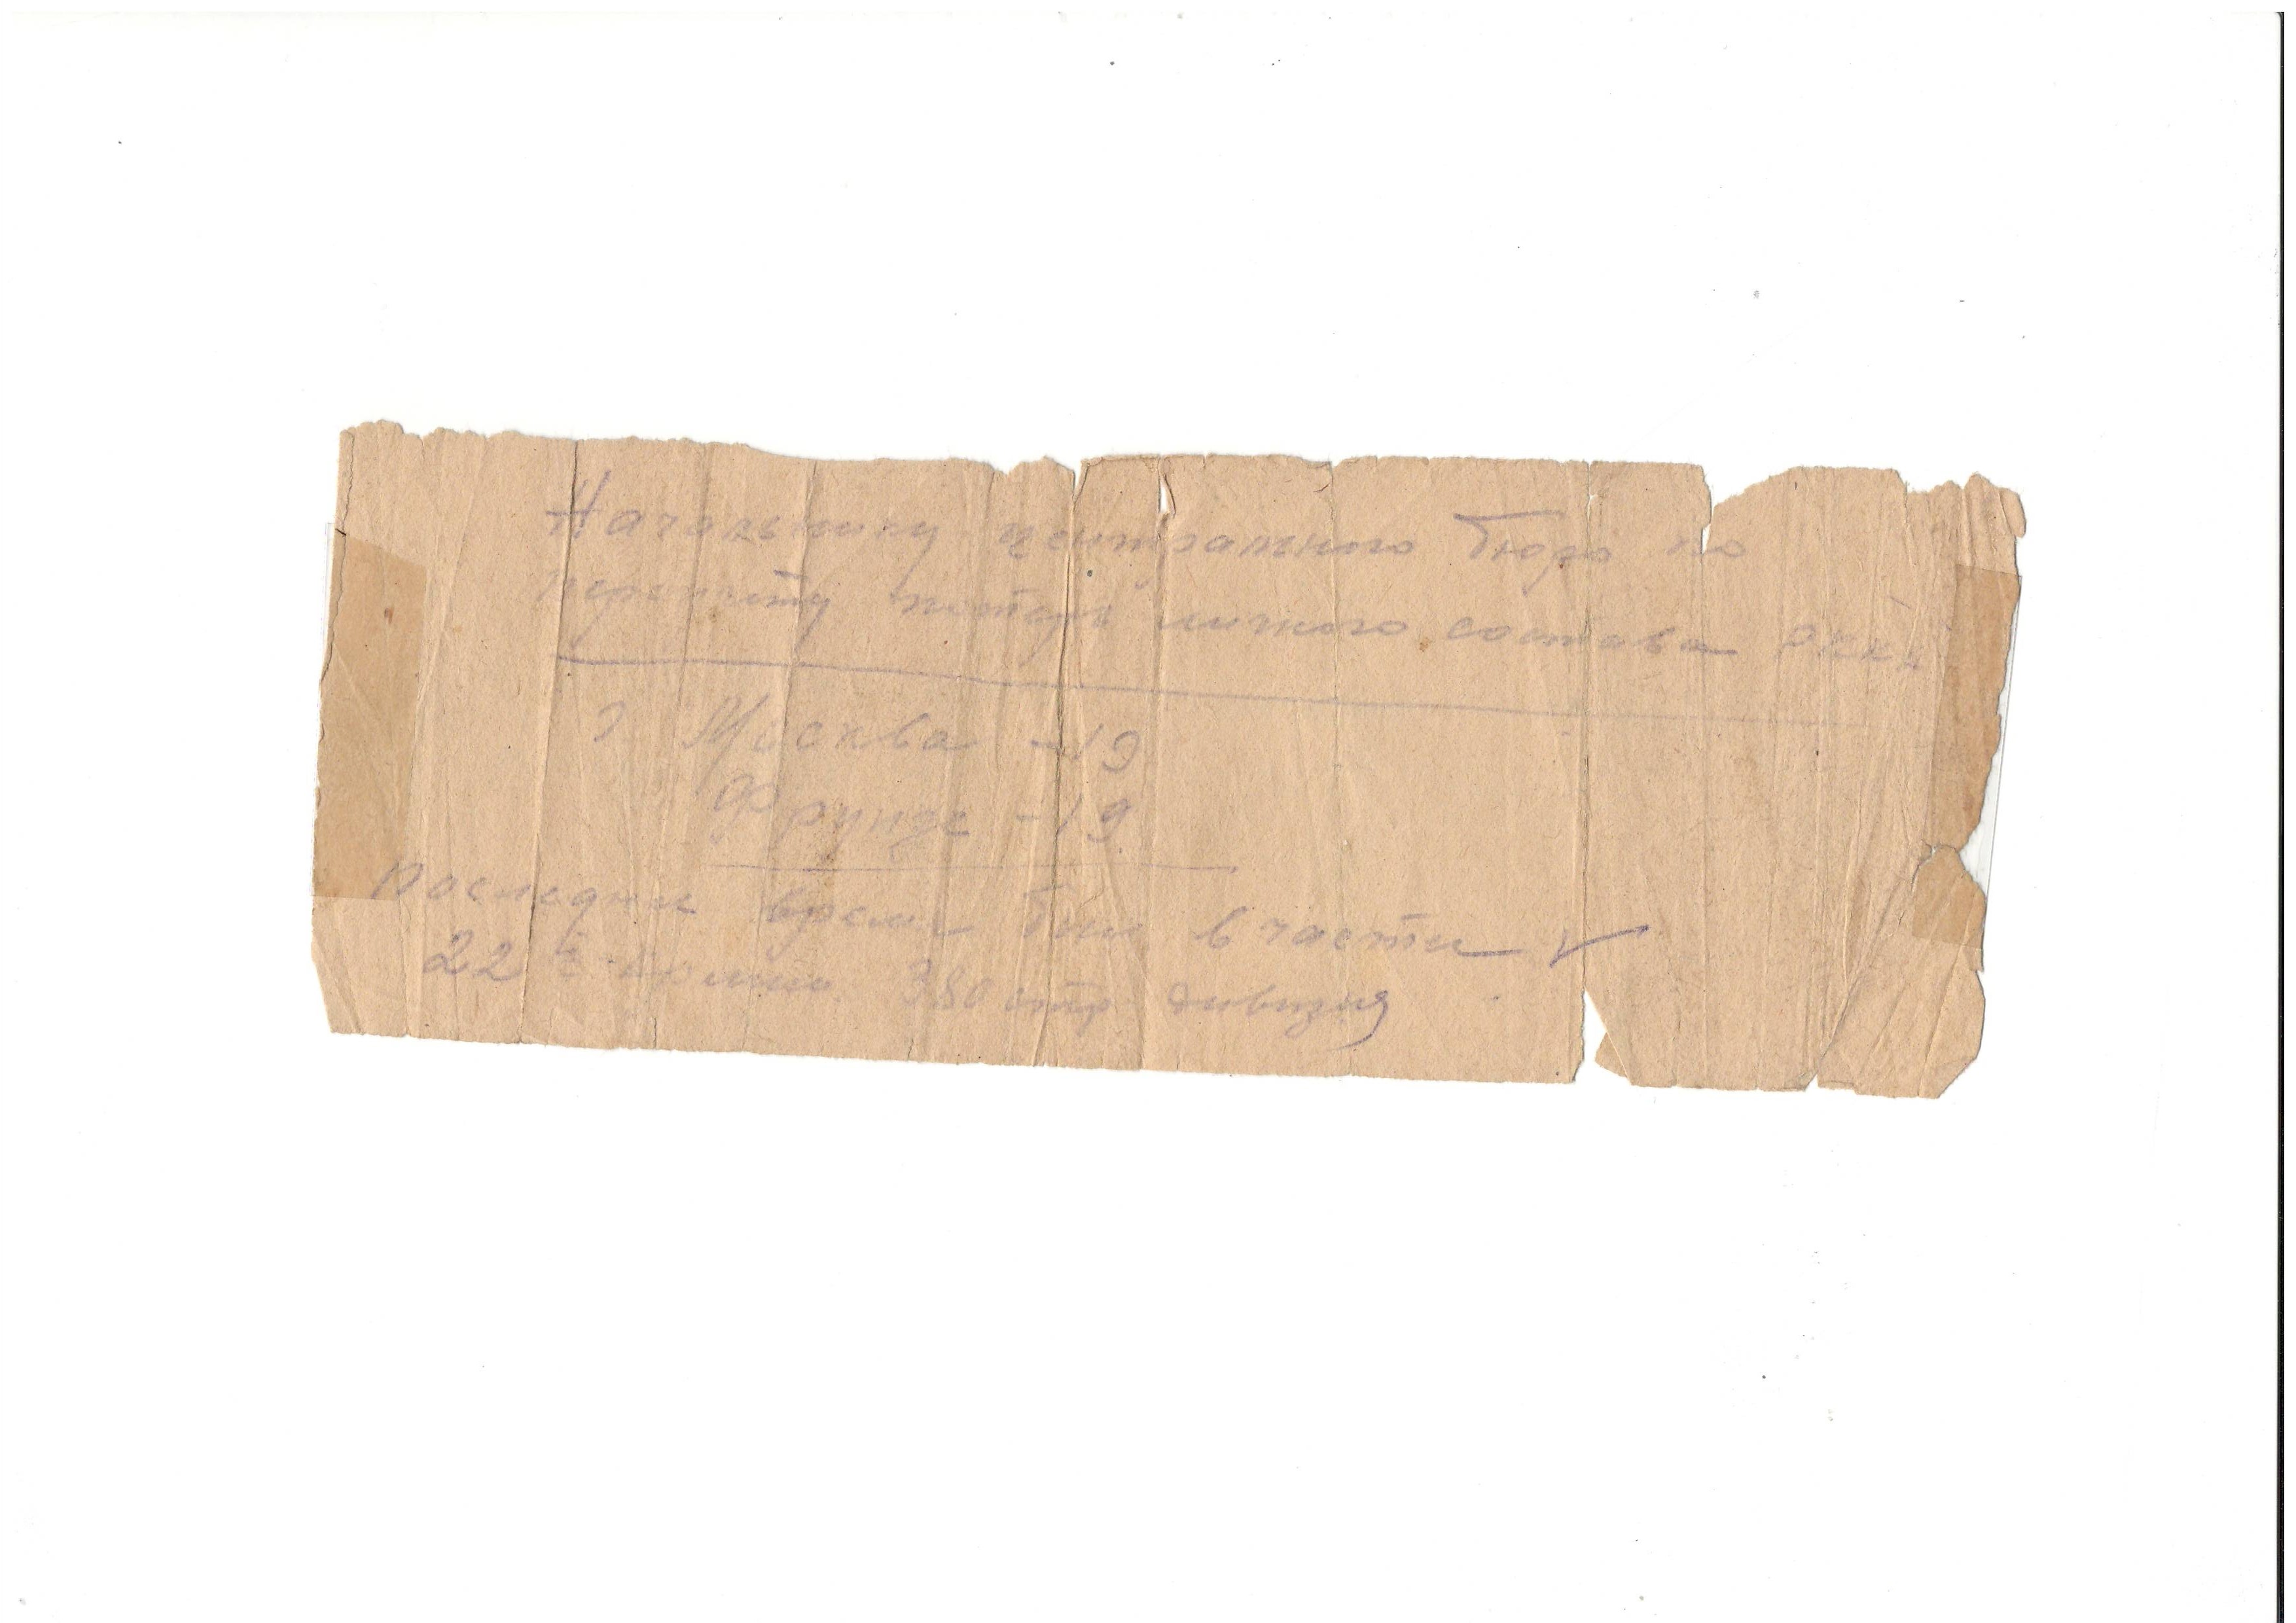 Начальнику центрального бюро по
персчету потерь личного состава РККА
г Москва -19
Фрунзе -19
последнее время был в части
22й армии 380 стр дивизия